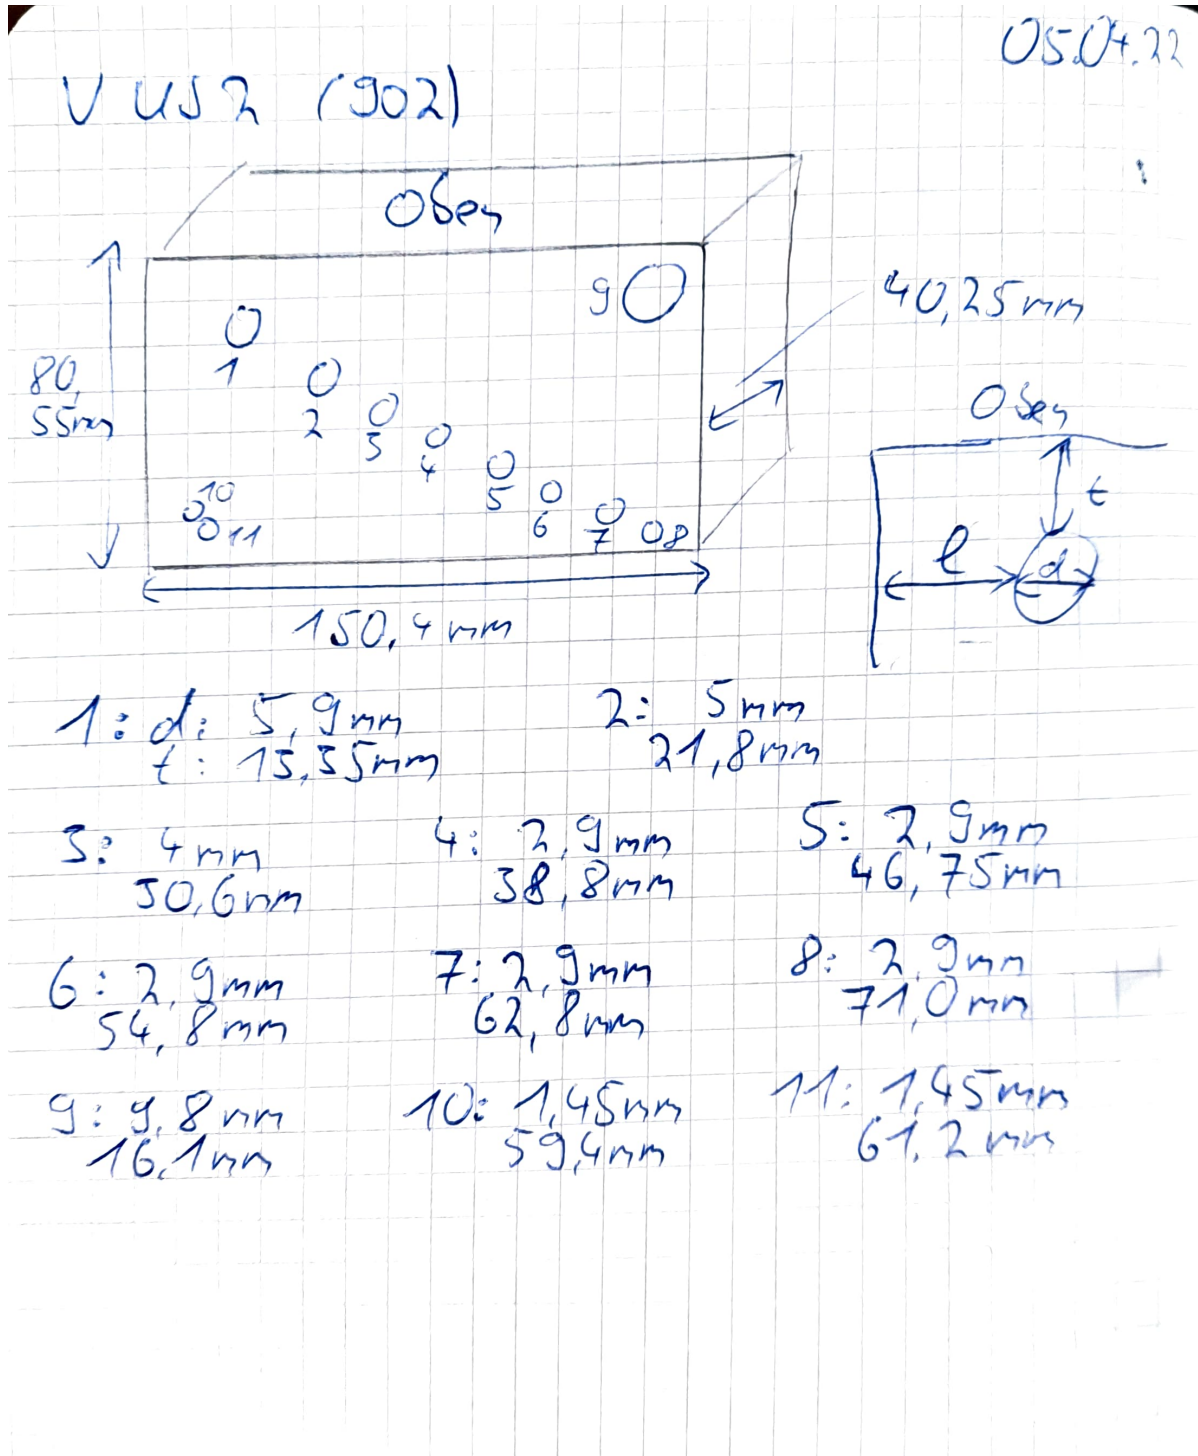 05.04.22
V US 2 (902)
Oben
9
40,25mm
1
80,
55mm
2
3
4
5
6
7
8
10
11
150,4mm
Oben
t
l
d
1: d: 5,9mm
t: 13,35mm
2: 5mm
21,8mm
3: 4mm
30,6mm
4: 2,9mm
38,8mm
5: 2,9mm
46,75mm
6: 2,9mm
54,8mm
7: 2,9mm
62,8mm
8: 2,9mm
71,0mm
9: 9,8mm
16,1mm
10: 1,45mm
59,4mm
11: 1,45mm
61,2mm